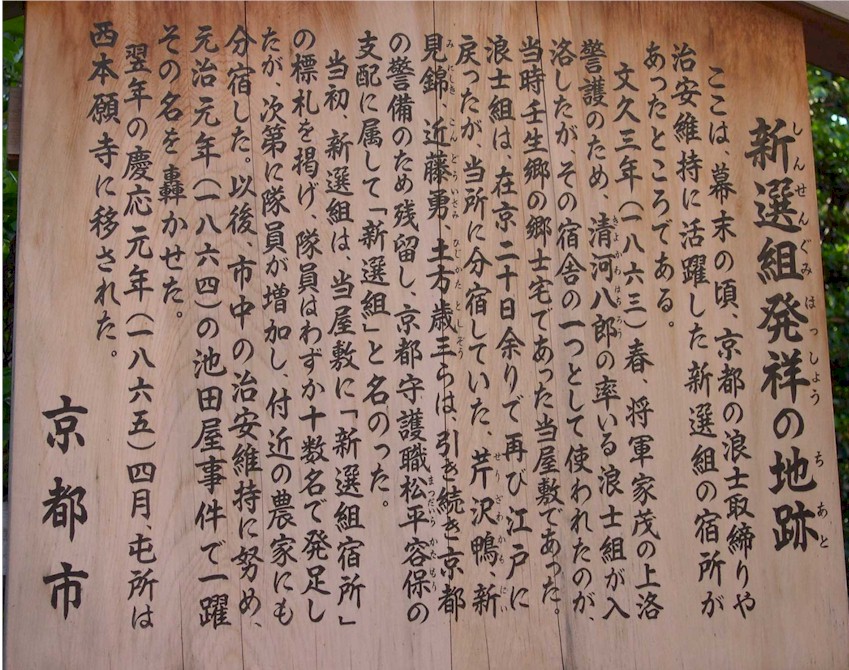 新選組発祥の地跡
しんせんぐみはっしょう ち あと
ここは、幕末の頃、京都の浪士取締りや
治安維持に活躍した新選組の宿所が
あったところである。
文久三年（一八六三）春、将軍家茂の上洛
警護のため、清河八郎の率いる浪士組が入
きよかわはちろう
洛したが、その宿舎の一つとして使われたのが、
当時壬生郷の郷士宅であった当屋敷であった。
浪士組は、在京二十日余りで再び江戸に
戻ったが、当所に分宿していた、芹沢鴨、新
せりざわかも にい
見錦、近藤勇、土方歳三らは、引き続き京都
みにしき こんどういさみ ひじかたとしぞう
の警備のため残留し、京都守護職松平容保の
まつだいらかたもり
支配に属して「新選組」と名のった。
当初、新選組は、当屋敷に「新選組宿所」
の標札を掲げ、隊員はわずか十数名で発足し
たが、次第に隊員が増加し、付近の農家にも
分宿した。以後、市中の治安維持に努め、
元治元年（一八六四）の池田屋事件で一躍
その名を轟かせた。
翌年の慶応元年（一八六五）四月、屯所は
西本願寺に移された。
京都市